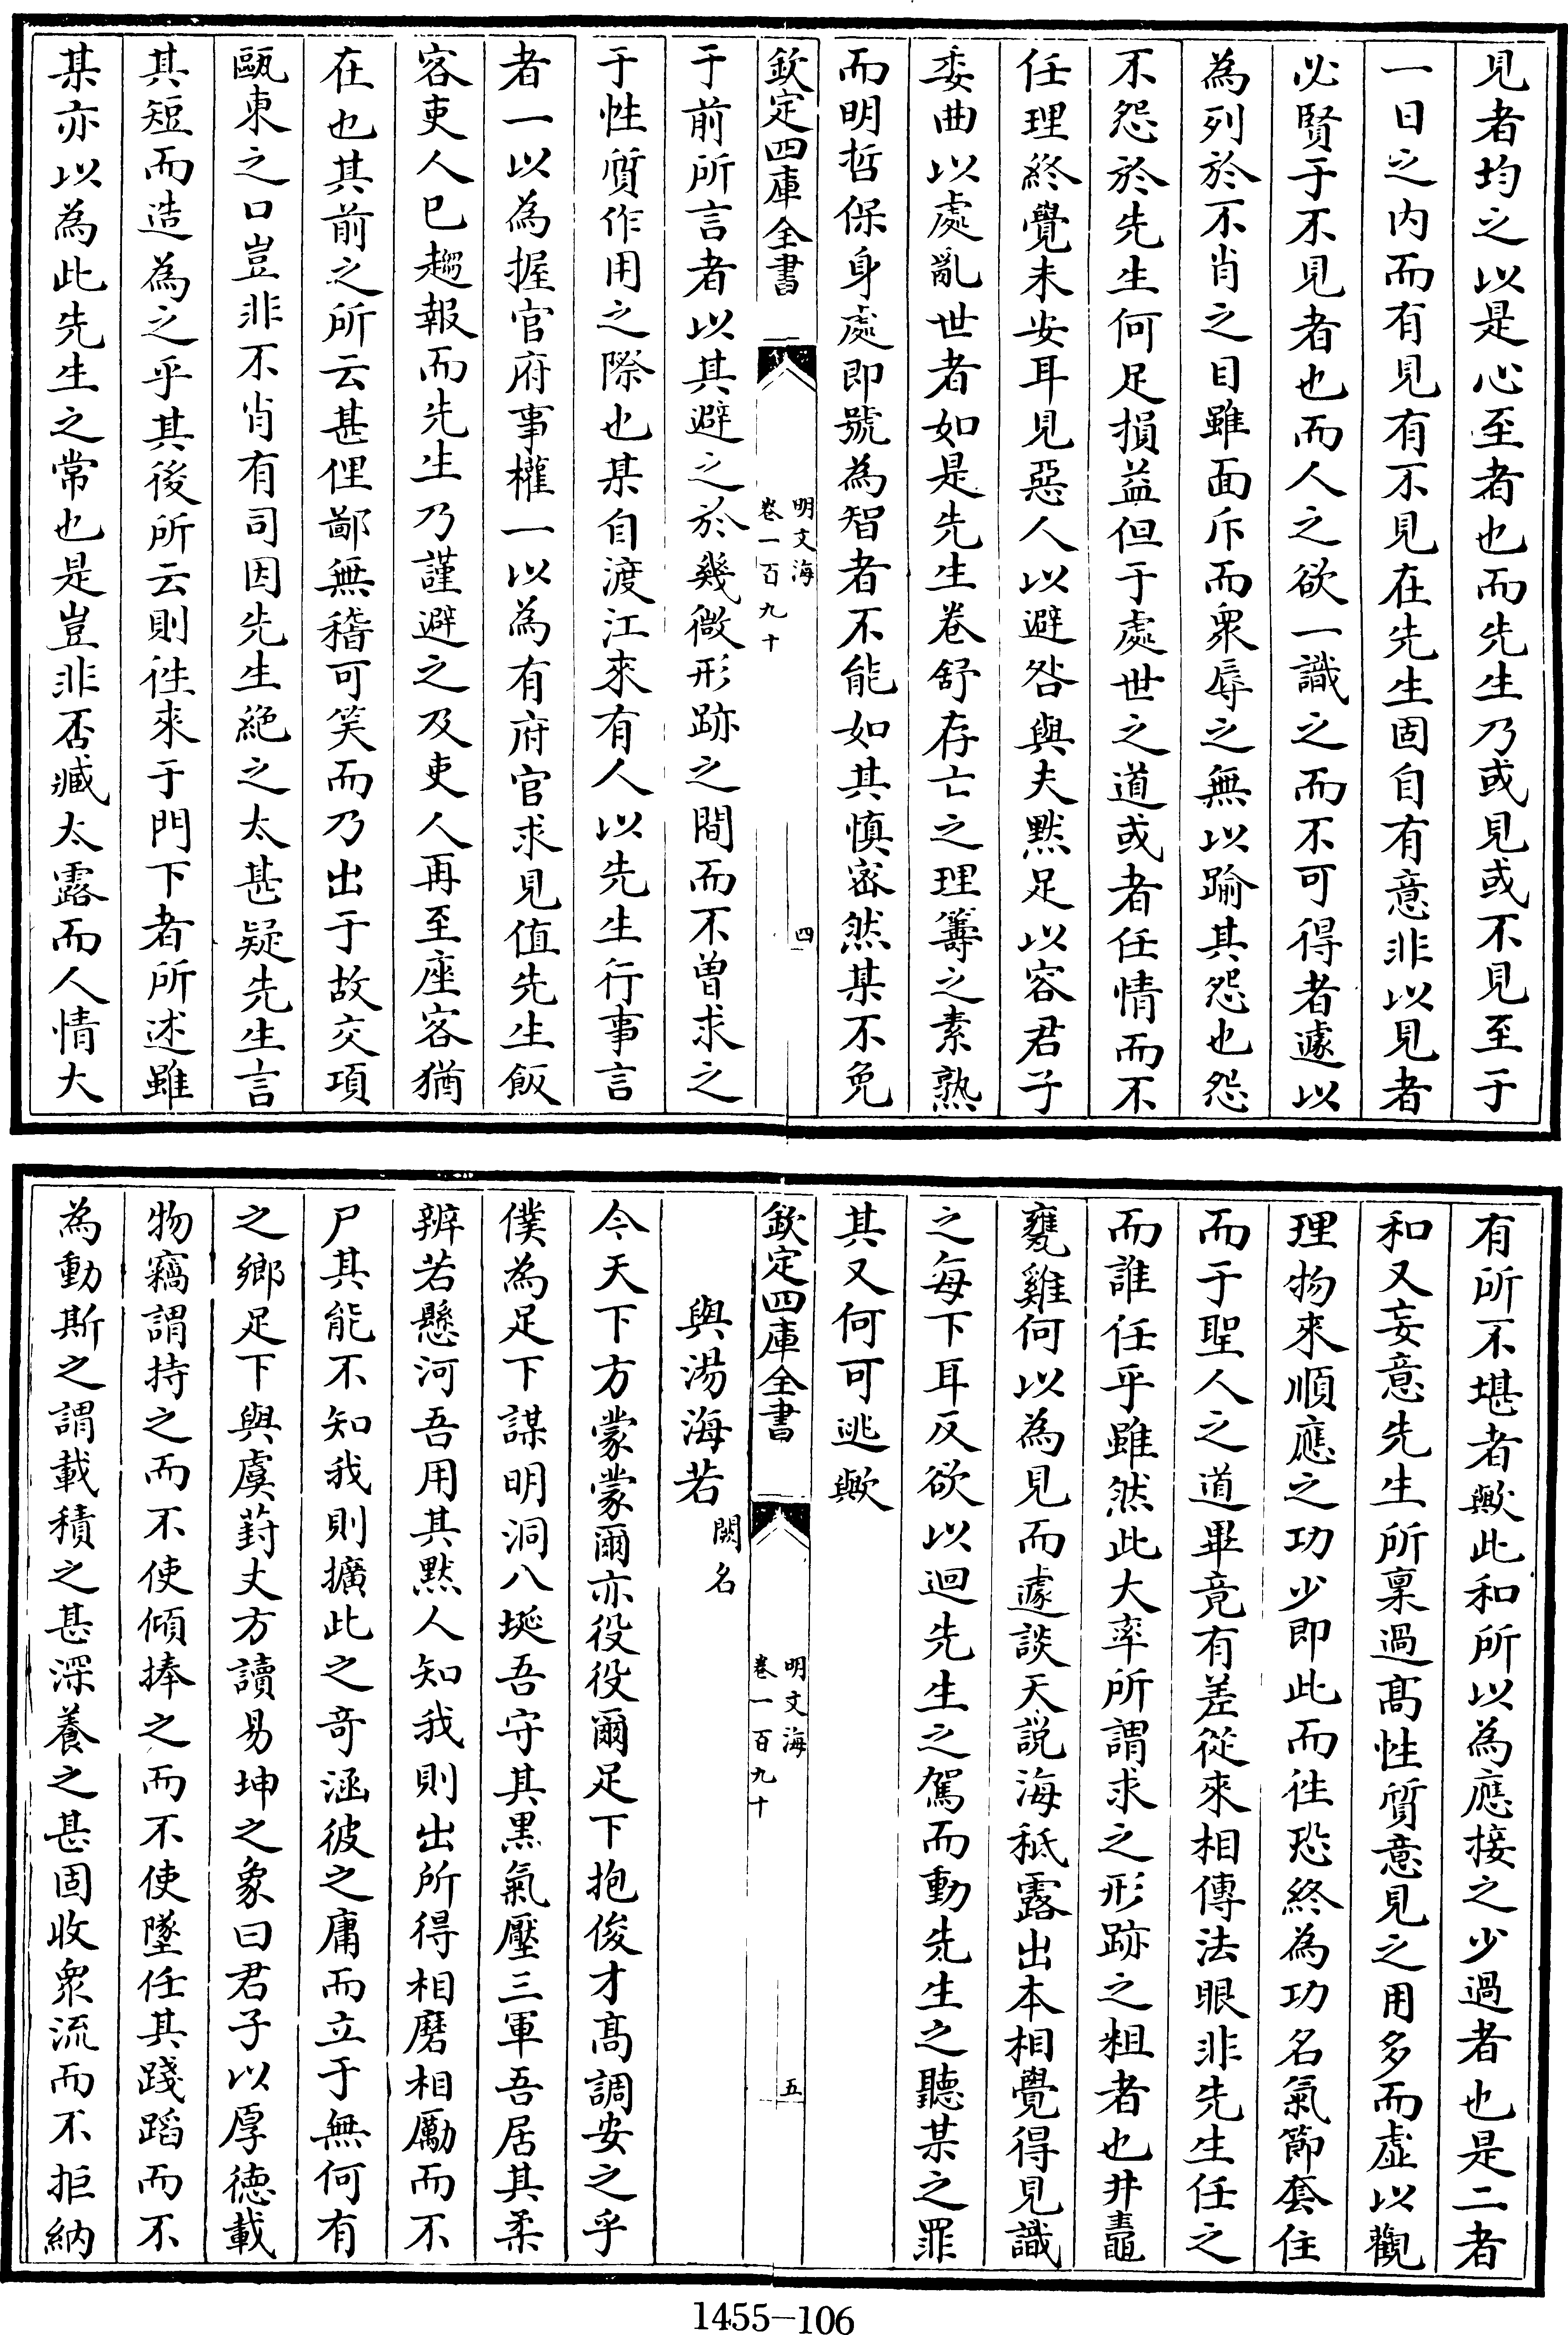 見者均之以是心至者也而先生乃或見或不見至于
一日之内而有見有不見在先生固自有意非以見者
必賢于不見者也而人之欲一識之而不可得者遽以
為列於不肖之目雖面斥而衆辱之無以踰其怨也怨
不怨於先生何足損益但于處世之道或者任情而不
任理終覺未安耳見惡人以避咎與夫黙足以容君子
委曲以處亂世者如是先生卷舒存亡之理籌之素熟
而明哲保身處即號為智者不能如其慎宻然某不免
欽定四庫全書
明文海
卷一百九十
四
于前所言者以其避之於幾微形跡之間而不曽求之
于性質作用之際也某自渡江來有人以先生行事言
者一以為握官府事權一以為有府官求見值先生飯
客吏人已趨報而先生乃謹避之及吏人再至座客猶
在也其前之所云甚俚鄙無稽可笑而乃出于故交項
甌東之口豈非不肖有司因先生絶之太甚疑先生言
其短而造為之乎其後所云則徃來于門下者所述雖
某亦以為此先生之常也是豈非否臧太露而人情大
有所不堪者歟此和所以為應接之少過者也是二者
和又妄意先生所稟過髙性質意見之用多而虚以觀
理物來順應之功少即此而徃恐終為功名氣節套住
而于聖人之道畢竟有差從來相傳法眼非先生任之
而誰任乎雖然此大率所謂求之形跡之粗者也井鼃
甕雞何以為見而遽談天説海秪露出本相覺得見識
之每下耳反欲以迴先生之駕而動先生之聽某之罪
其又何可逃歟
欽定四庫全書
明文海
卷一百九十
五
與湯海若
闕名
今天下方蒙蒙爾亦役役爾足下抱俊才髙調安之乎
僕為足下謀明洞八埏吾守其黒氣壓三軍吾居其柔
辨若懸河吾用其黙人知我則出所得相磨相勵而不
尸其能不知我則擴此之竒涵彼之庸而立于無何有
之鄉足下與虞葑丈方讀易坤之象曰君子以厚德載
物竊謂持之而不使傾捧之而不使墜任其踐蹈而不
為動斯之謂載積之甚深養之甚固收衆流而不拒納
1455-106